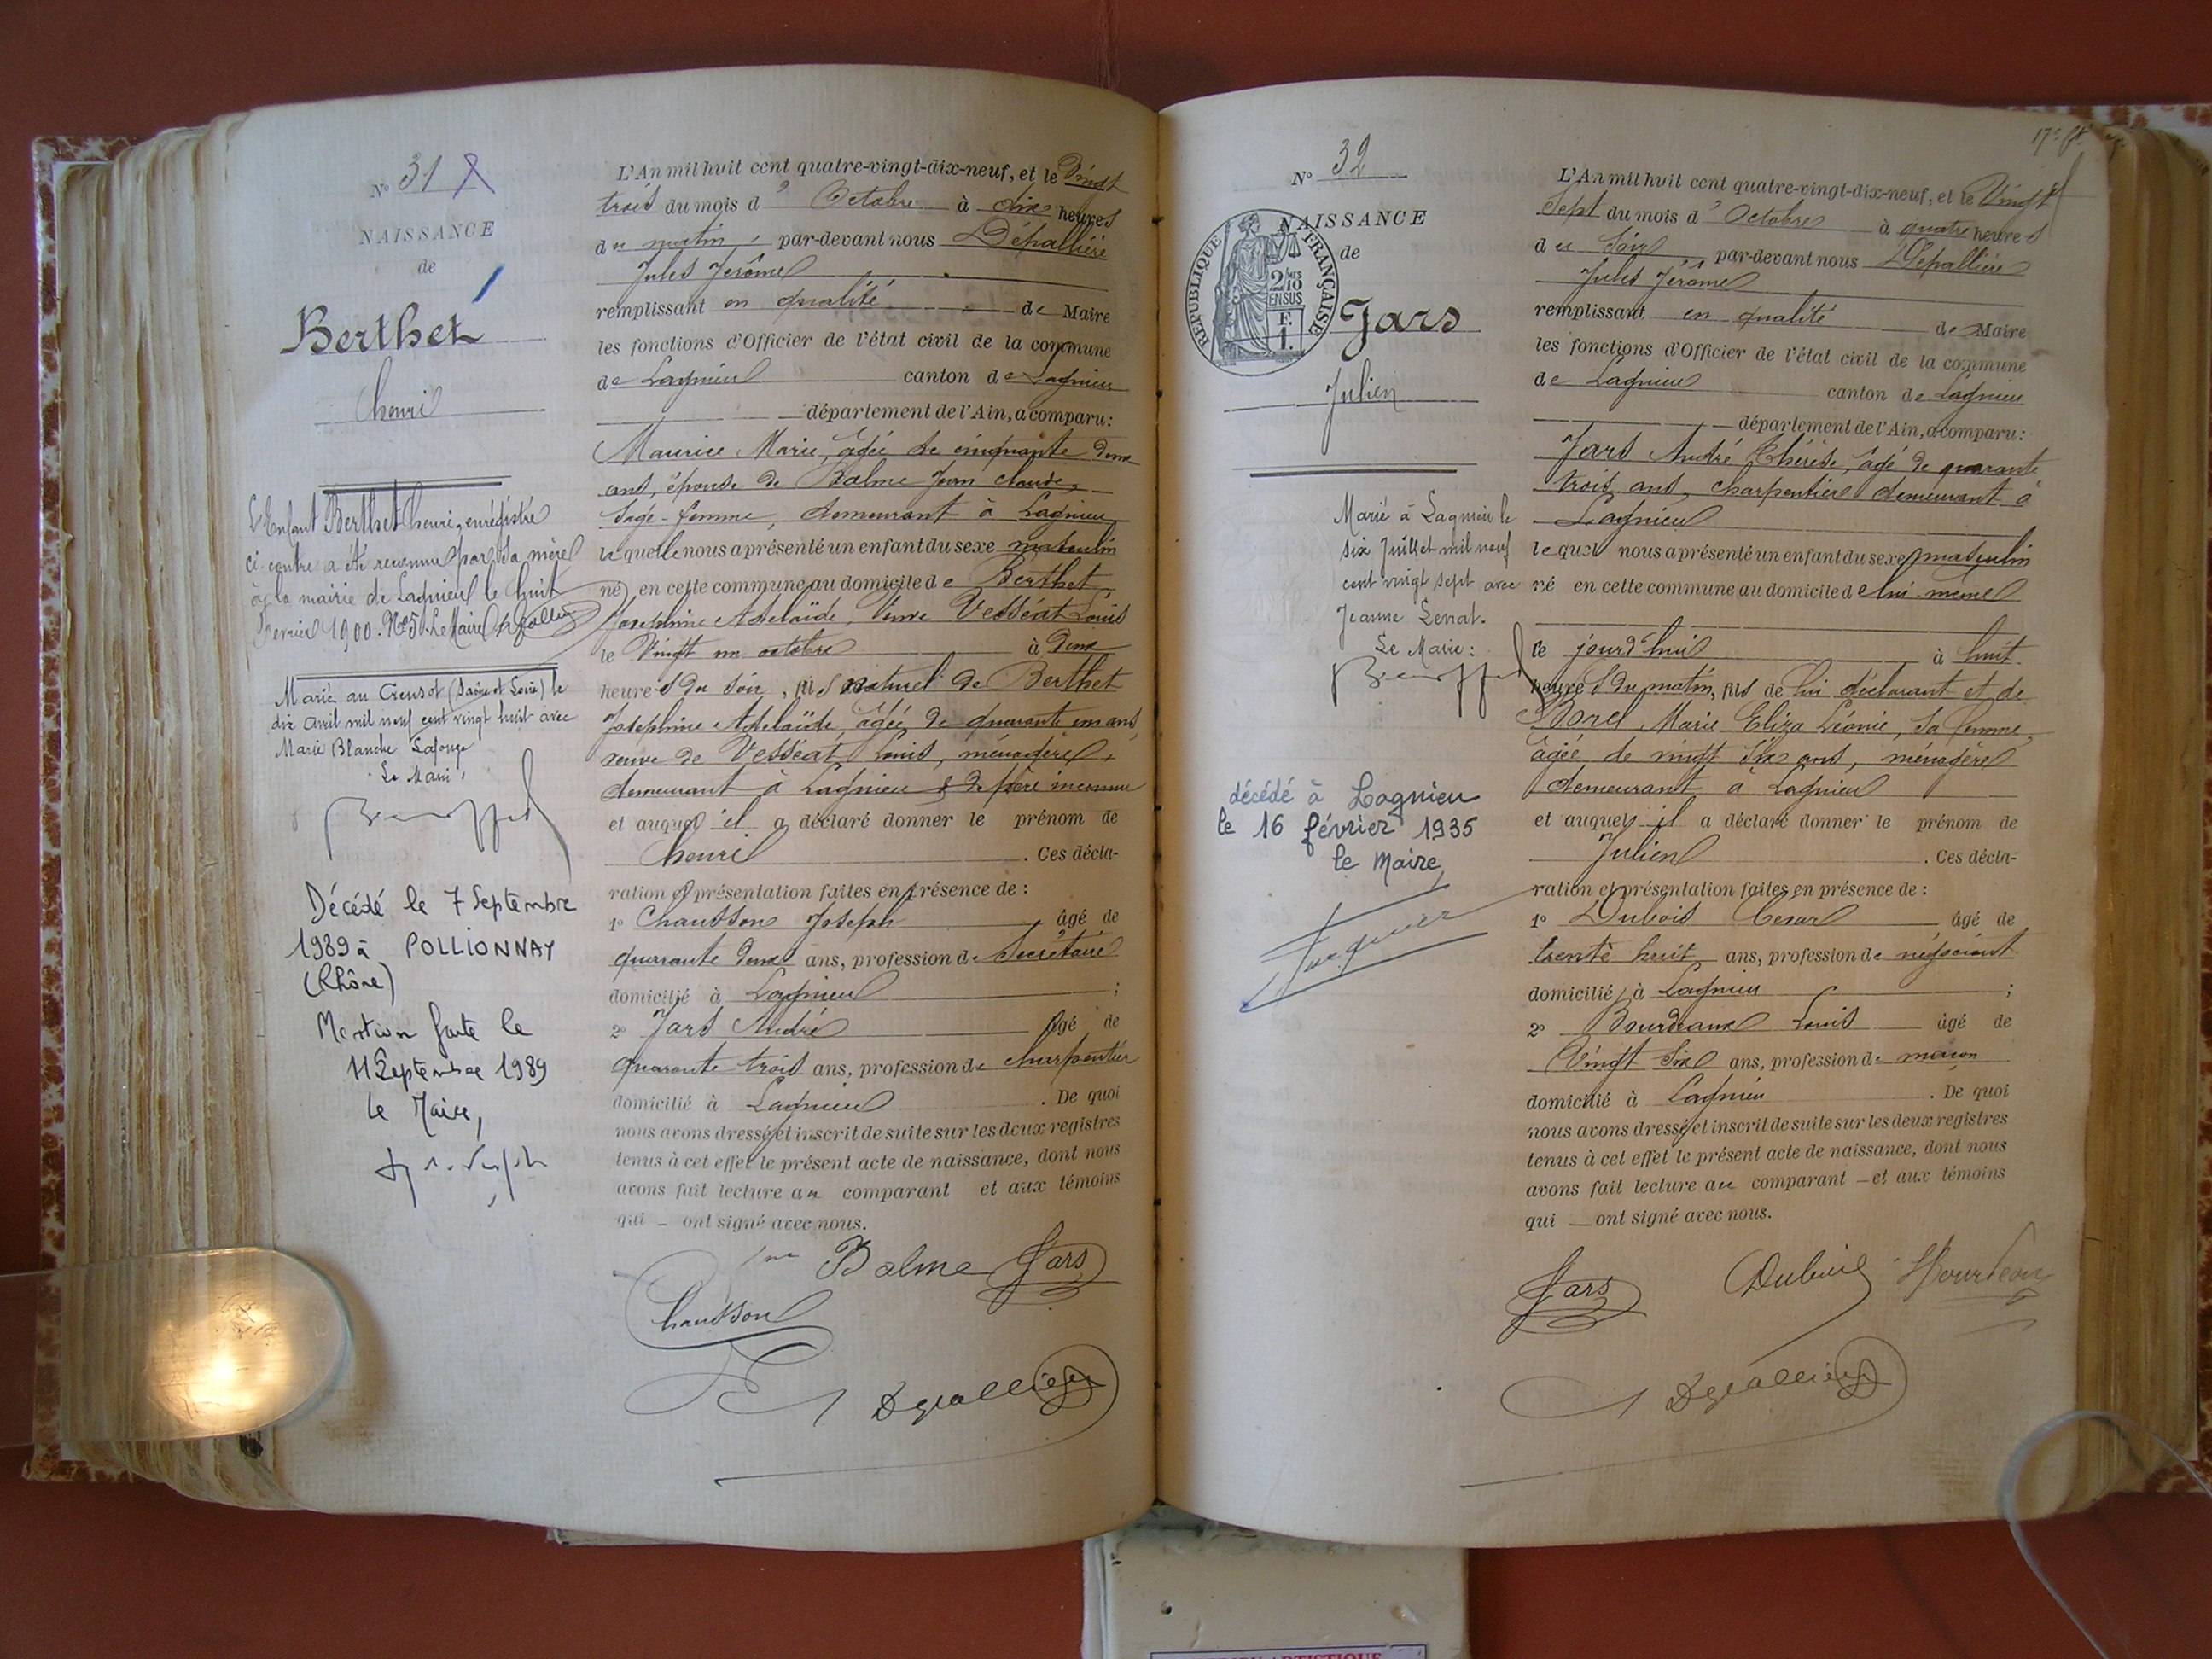 N° 31
NAISSANCE
de
Berthet
henri
L'Enfant Berthet henri, enrégistré
ci-contre a été reconnu par sa mère
à la mairie de Lagnieu le huit
1900. N° 5. Le Maire
Marié au Creusot (Saône et Loire) le
dix avril mil neuf cent vingt huit avec
Marie Blanche Lafouge
Le Maire,
Décédé le 7 Septembre
1989 à POLLIONNAY
(Rhône)
Mention faite le
11 Septembre 1989
le Maire,
L'An mil huit cent quatre-vingt-dix-neuf, et le Vingt
trois du mois d'Octobre à dix heures
du matin, par-devant nous Dépallière
Jules Jérôme
remplissant en qualité de Maire
les fonctions d'Officier de l'état civil de la commune
de Lagnieu canton de Lagnieu
département de l'Ain, a comparu:
Maurice Marie, âgée de cinquante deux
ans, épouse de Balme Jean Claude,
Sage-femme, demeurant à Lagnieu
laquelle nous a présenté un enfant du sexe masculin
né en cette commune au domicile de Berthet
Josephine Adelaïde, Veuve Vesséat Louis
le Vingt un octobre à deux
heures du soir, fils naturel de Berthet
Josephine Adelaïde, âgée de quarante un ans,
veuve de Vesséat Louis, ménagère,
demeurant à Lagnieu & de père inconnu
et auquel il a déclaré donner le prénom de
henri . Ces décla-
ration et présentation faites en présence de :
1° Chausson Joseph âgé de
quarante deux ans, profession de Secrétaire
domicilié à Lagnieu ;
2° Jars André âgé de
quarante trois ans, profession de charpentier
domicilié à Lagnieu . De quoi
nous avons dressé et inscrit de suite sur les deux registres
tenus à cet effet le présent acte de naissance, dont nous
avons fait lecture au comparant et aux témoins
qui – ont signé avec nous.
Balme Jars
Chausson
Dépallière
17e ft
N° 32
NAISSANCE
de
REPUBLIQUE FRANÇAISE
2/10
EN SUS
F.
1.
Jars
Julien
Marié à Lagnieu le
six Juillet mil neuf
cent vingt sept avec
Jeanne
Le Maire :
décédé à Lagnieu
le 16 février 1935
le Maire,
L'An mil huit cent quatre-vingt-dix-neuf, et le Vingt
Sept du mois d'Octobre à quatre heures
du Soir par-devant nous Dépallière
Jules Jérôme
remplissant en qualité de Maire
les fonctions d'Officier de l'état civil de la commune
de Lagnieu canton de Lagnieu
département de l'Ain, a comparu:
Jars André Thérèse, âgé de quarante
trois ans, charpentier demeurant à
Lagnieu
lequel nous a présenté un enfant du sexe masculin
né en cette commune au domicile de lui même
ce jourd'hui à huit
heures du matin, fils de lui déclarant et de
Borel Marie Eliza Léonie, sa femme,
âgée de vingt six ans, ménagère
demeurant à Lagnieu
et auquel il a déclaré donner le prénom de
Julien . Ces décla-
ration et présentation faites en présence de :
1° Dubois Cesar âgé de
trente huit ans, profession de négociant
domicilié à Lagnieu ;
2° Bourdeaux Louis âgé de
Vingt Six ans, profession de maçon
domicilié à Lagnieu . De quoi
nous avons dressé et inscrit de suite sur les deux registres
tenus à cet effet le présent acte de naissance, dont nous
avons fait lecture au comparant – et aux témoins
qui — ont signé avec nous.
Jars Dubois Bourdeaux
Dépallière